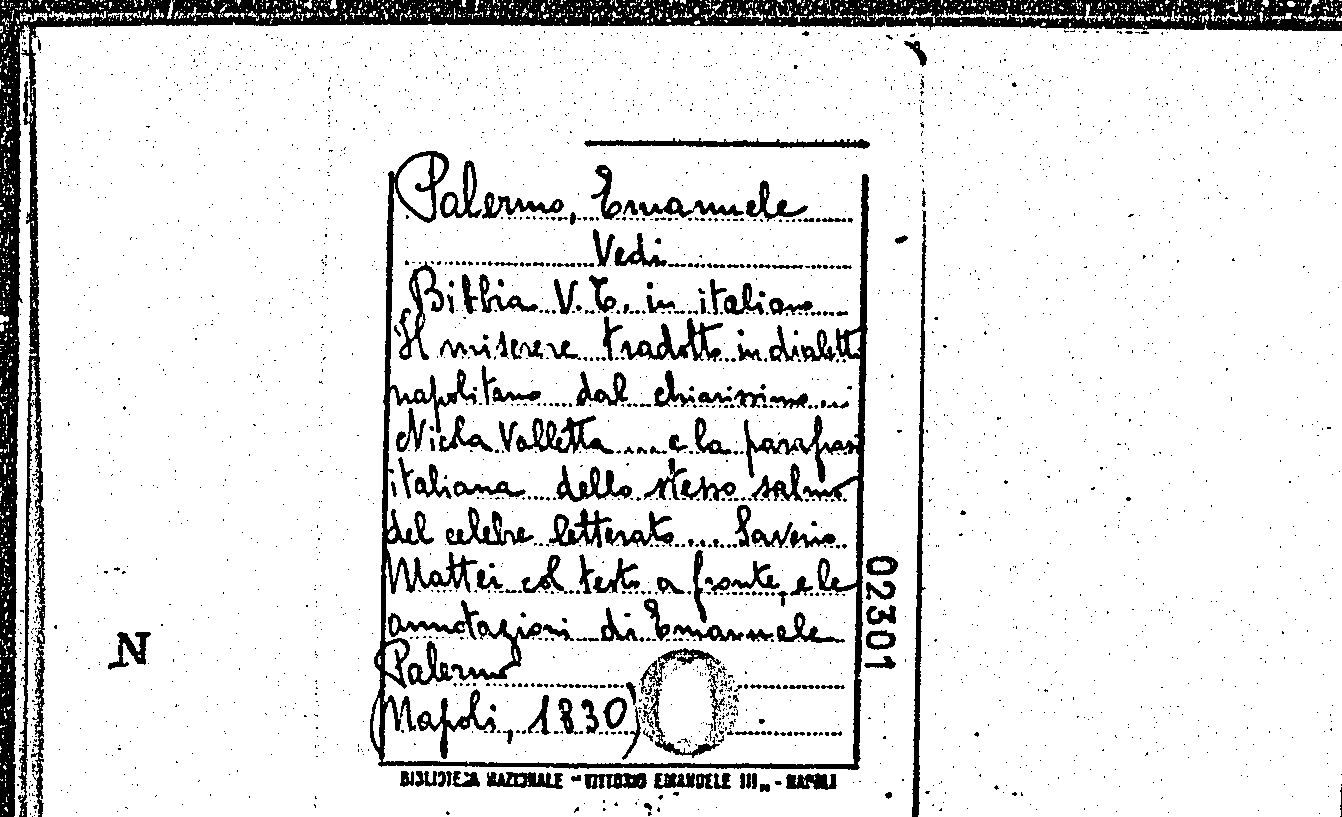 Palermo, Emanuele
Vedi
Bibbia V.T. in italiano
Il miserere tradotto in dialetto
napolitano dal chiarissimo...
Nicola Valletta ... e la parafrasi
italiana dello stesso salmo
del celebre letterato ... Saverio
Mattei col testo a fronte, e le
annotazioni di Emanuele
Palermo
(Napoli, 1830)
BIBLIOTECA NAZIONALE "VITTORIO EMANUELE III„ - NAPOLI
02301
N